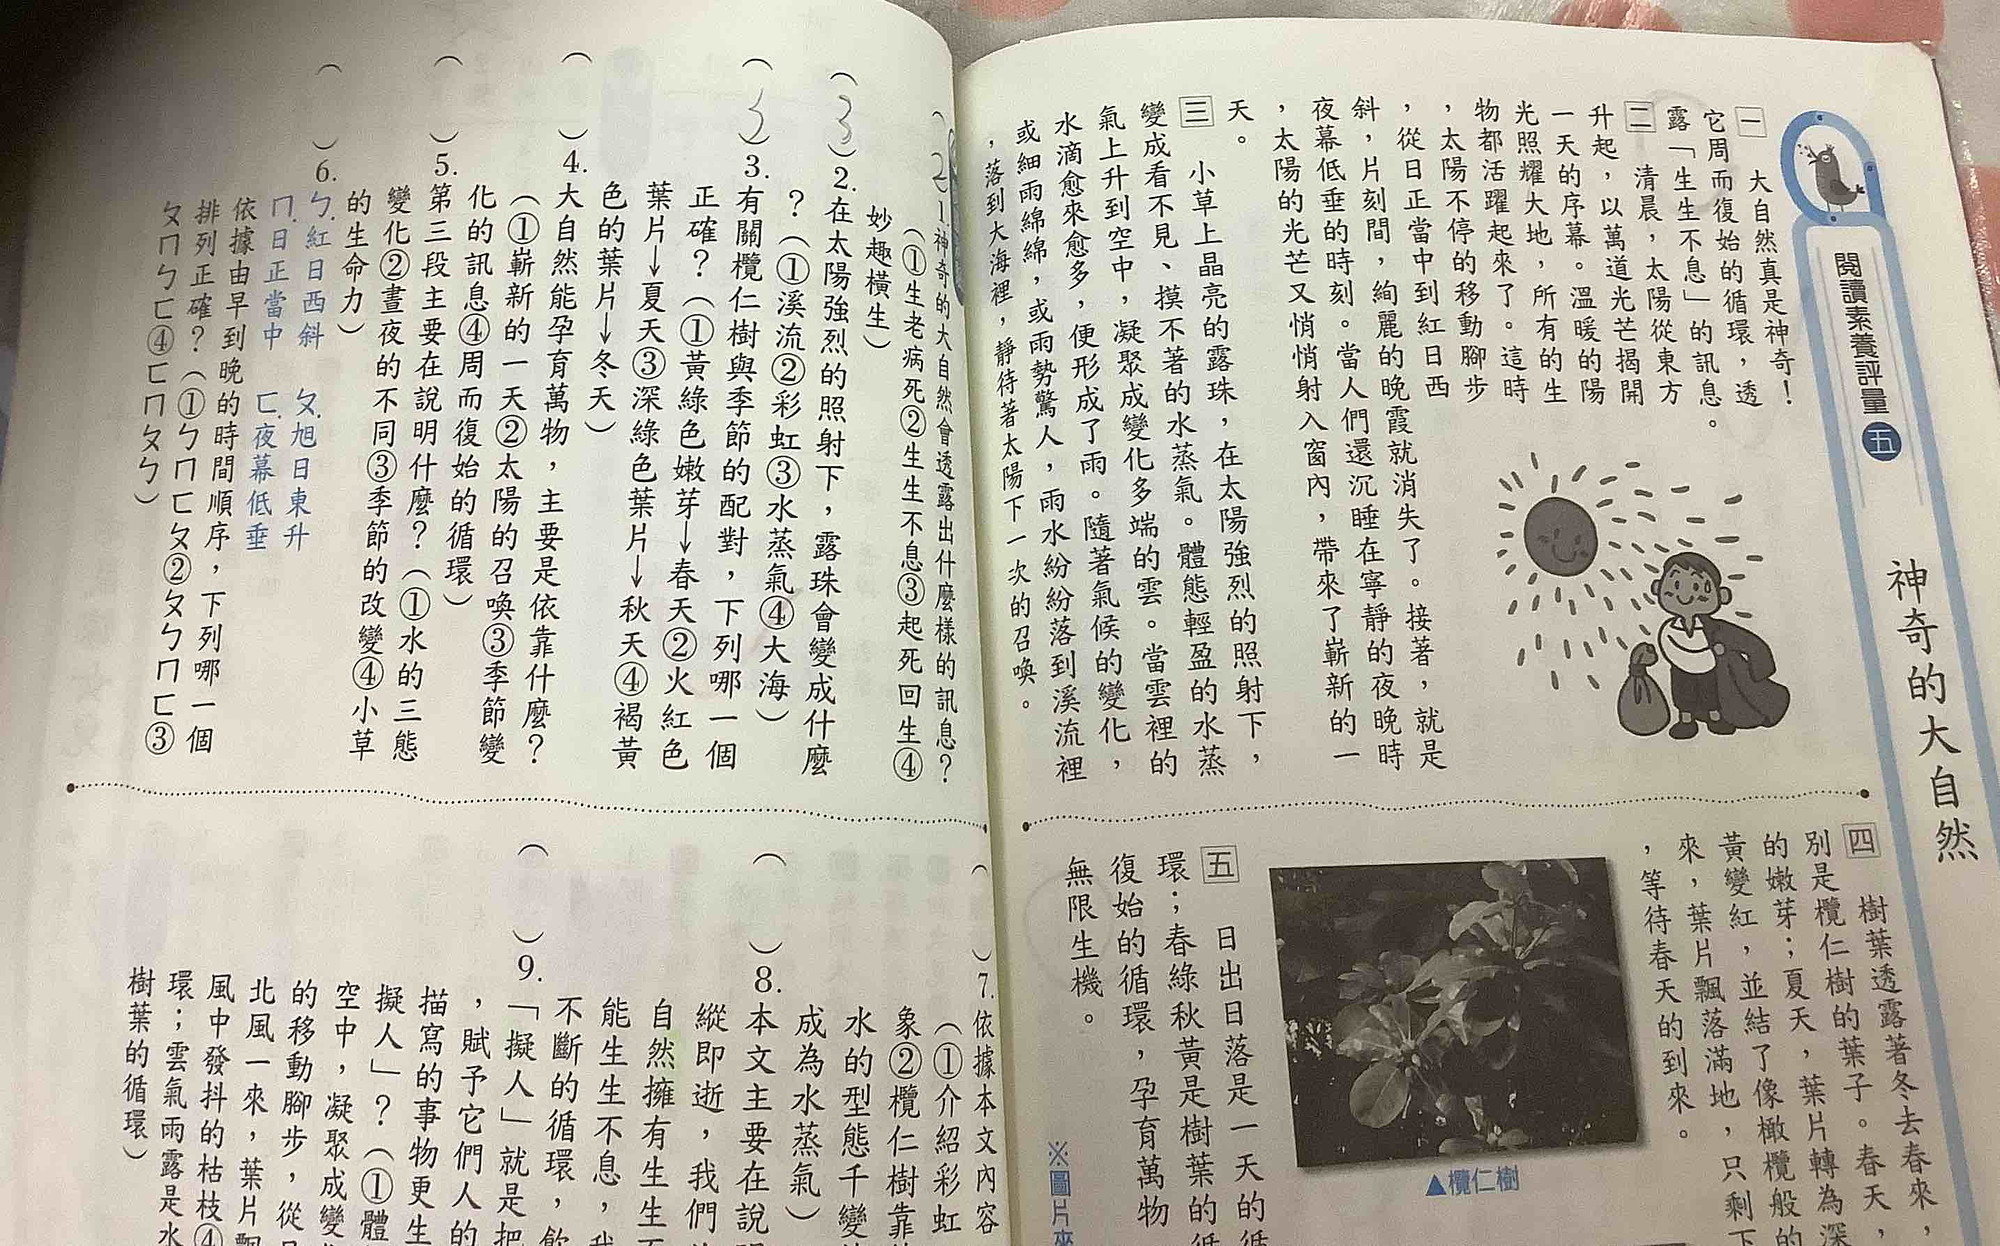 閱讀素養評量 五
神奇的大自然
一 大自然真是神奇！
它周而復始的循環，透
露「生生不息」的訊息。
二 清晨，太陽從東方
升起，以萬道光芒揭開
一天的序幕。溫暖的陽
光照耀大地，所有的生
物都活躍起來了。這時
，太陽不停的移動腳步
，從日正當中到紅日西
斜，片刻間，絢麗的晚霞就消失了。接著，就是
夜幕低垂的時刻。當人們還沉睡在寧靜的夜晚時
，太陽的光芒又悄悄射入窗內，帶來了嶄新的一
天。
三 小草上晶亮的露珠，在太陽強烈的照射下，
變成看不見、摸不著的水蒸氣。體態輕盈的水蒸
氣上升到空中，凝聚成變化多端的雲。當雲裡的
水滴愈來愈多，便形成了雨。隨著氣候的變化，
或細雨綿綿，或雨勢驚人，雨水紛紛落到溪流裡
，落到大海裡，靜待著太陽下一次的召喚。
四 樹葉透露著冬去春來，
別是欖仁樹的葉子。春天，
的嫩芽；夏天，葉片轉為深
黃變紅，並結了像橄欖般的
來，葉片飄落滿地，只剩下
，等待春天的到來。
▲欖仁樹
五 日出日落是一天的循
環；春綠秋黃是樹葉的循
復始的循環，孕育萬物
無限生機。
※圖片來
（2）1.神奇的大自然會透露出什麼樣的訊息？
（①生老病死②生生不息③起死回生④
妙趣橫生）
（3）2.在太陽強烈的照射下，露珠會變成什麼
？（①溪流②彩虹③水蒸氣④大海）
（2）3.有關欖仁樹與季節的配對，下列哪一個
正確？（①黃綠色嫩芽→春天②火紅色
葉片→夏天③深綠色葉片→秋天④褐黃
色的葉片→冬天）
（ ）4.大自然能孕育萬物，主要是依靠什麼？
（①嶄新的一天②太陽的召喚③季節變
化的訊息④周而復始的循環）
（ ）5.第三段主要在說明什麼？（①水的三態
變化②晝夜的不同③季節的改變④小草
的生命力）
（ ）6.ㄅ.紅日西斜 ㄆ.旭日東升
ㄇ.日正當中 ㄈ.夜幕低垂
依據由早到晚的時間順序，下列哪一個
排列正確？（①ㄅㄇㄈㄆ②ㄆㄅㄇㄈ③
ㄆㄇㄅㄈ④ㄈㄇㄆㄅ）
（ ）7.依據本文內容
（①介紹彩虹
象②欖仁樹靠
水的型態千變
成為水蒸氣）
（ ）8.本文主要在說
縱即逝，我們
自然擁有生生
能生生不息，我
不斷的循環，飲
（ ）9.「擬人」就是把
，賦予它們人的
描寫的事物更生
擬人」？（①體
空中，凝聚成變
的移動腳步，從
北風一來，葉片飄
風中發抖的枯枝④
環；雲氣雨露是水
樹葉的循環）